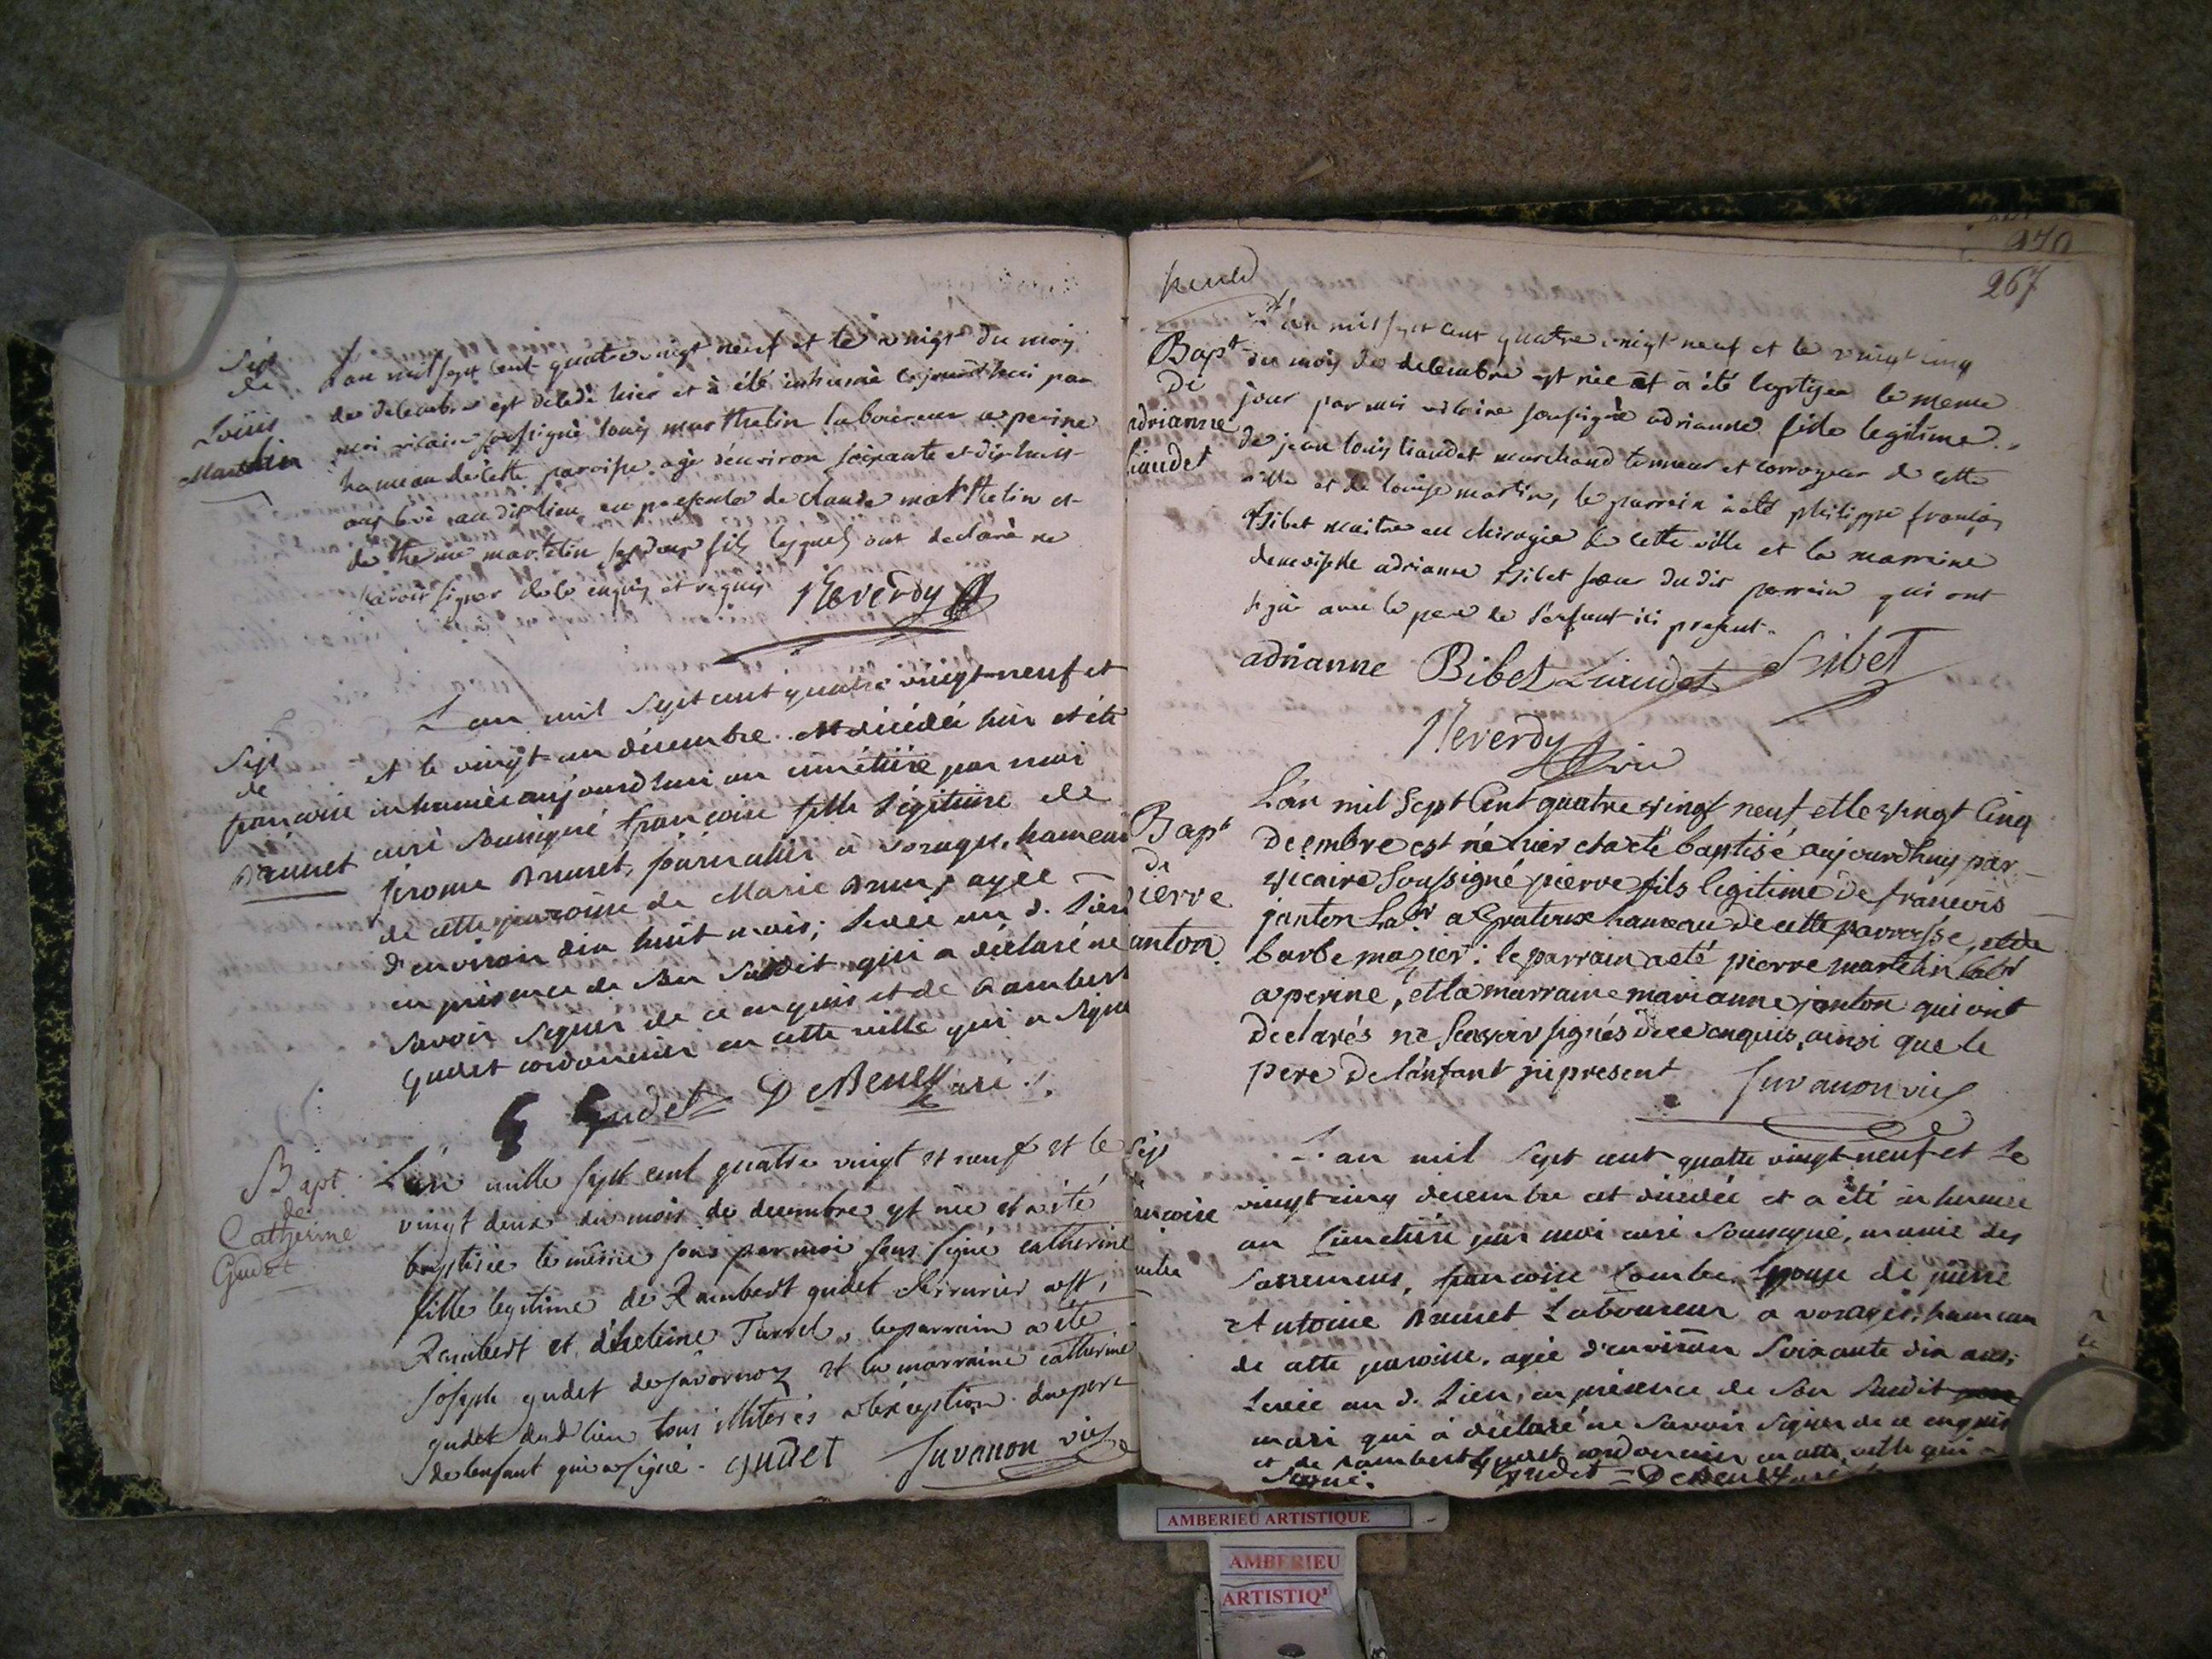 Sep
de
Loüis
Martelin
L'an mil sept cent quatre vingt neuf et le vingt du mois
de decembre est decedé hier et à été inhumé ce jourdhui par
moi vicaire soussigné louis marthelin laboureur a perine
hameau de cette paroisse agé d'environ soixante et dix huit
ans levé au dit lieu en presence de claude marthelin et
de martelin ses deux fils lesquels ont declaré ne
savoir signer de ce enquis et requis Reverdy
Sep
de
francoise
Brunet
L'an mil sept cent quatre vingt neuf et
et le vingt un décembre est décédée hier et été
inhumée aujourd'hui au cimétiére par moi
curé soussigné françoise fille légitime de
Jérome Brunet, journalier à vorages, hameau
de cette paroisse de Marie agée
d'environ dix huit mois; levée au d. lieu
en présence de son susdit qui a déclaré ne
savoir signer de ce enquis et de Rambert
gudet cordonnier en cette ville qui a signé
Gudet DeBeney curé
Bapt
de
Catherine
Gudet
L'an mille sept cent quatre vingt et neuf et le
vingt deux du mois de decembre est née et a été
baptisée le même jour par moi sous signé catherine
fille legitime de Rambert gudet Serrurier a st,
Rambert et d'heleine Turrel, le parrain a été
joseph gudet de javornoz et la marraine catherine
gudet dud lieu tous illiterés a l'exception du pere
de l'enfant qui a signé. gudet Juvanon vic
270
267
Bapt
De
adrianne
liaudet
L'an mil sept cent quatre vingt neuf et le vingt cinq
du mois de decembre est née et a été baptisee le meme
jour par moi vicaire soussigné adrianne fille legitime
de jean louis liaudet marchand tanneur et corroyeur de cette
ville et de louise martin, le parrain a été philippe françois
Bibet maitre en chirugie de cette ville et la marraine
demoiselle adrianne Bibet soeur du dit parrain qui ont
signé avec le pere de l'enfant ici present.
adrianne Bibet Liaudet Bibet
Reverdy vic
Bapt
De
pierre
janton
L'an mil Sept Cent quatre vingt neuf et le vingt Cinq
Decembre est né hier et a eté baptisé aujourdhuy par
vicaire Soussigné pierre fils legitime de francois
janton lab.r a Grateux hameau de cette parroisse, et de
barbe mazier: le parrain a eté pierre martelin lab.r
a perine, et la marraine marianne janton qui ont
declarés ne scavoir signés de ce enquis, ainsi que le
pere De l'enfant ji present Juvanon vic
Sep
ancoise
ombe
L'an mil sept cent quatre vingt neuf et le
vingt cinq decembre est décédée et a été inhumée
au cimetiére par moi curé soussigné, munie des
sacremens, francoise Combe épouse de pierre
Antoine Brunet Laboureur a vorages, hameau
de cette paroisse, agée d'environ soixante dix ans;
levée au d. lieu, en présence de son susdit
mari qui à déclaré ne savoir signer de ce enquis
et de Rambert Gudet cordonnier en cette ville qui a
signé. Gudet = DeBeney curé
AMBERIEU ARTISTIQUE
AMBERIEU
ARTISTIQ'